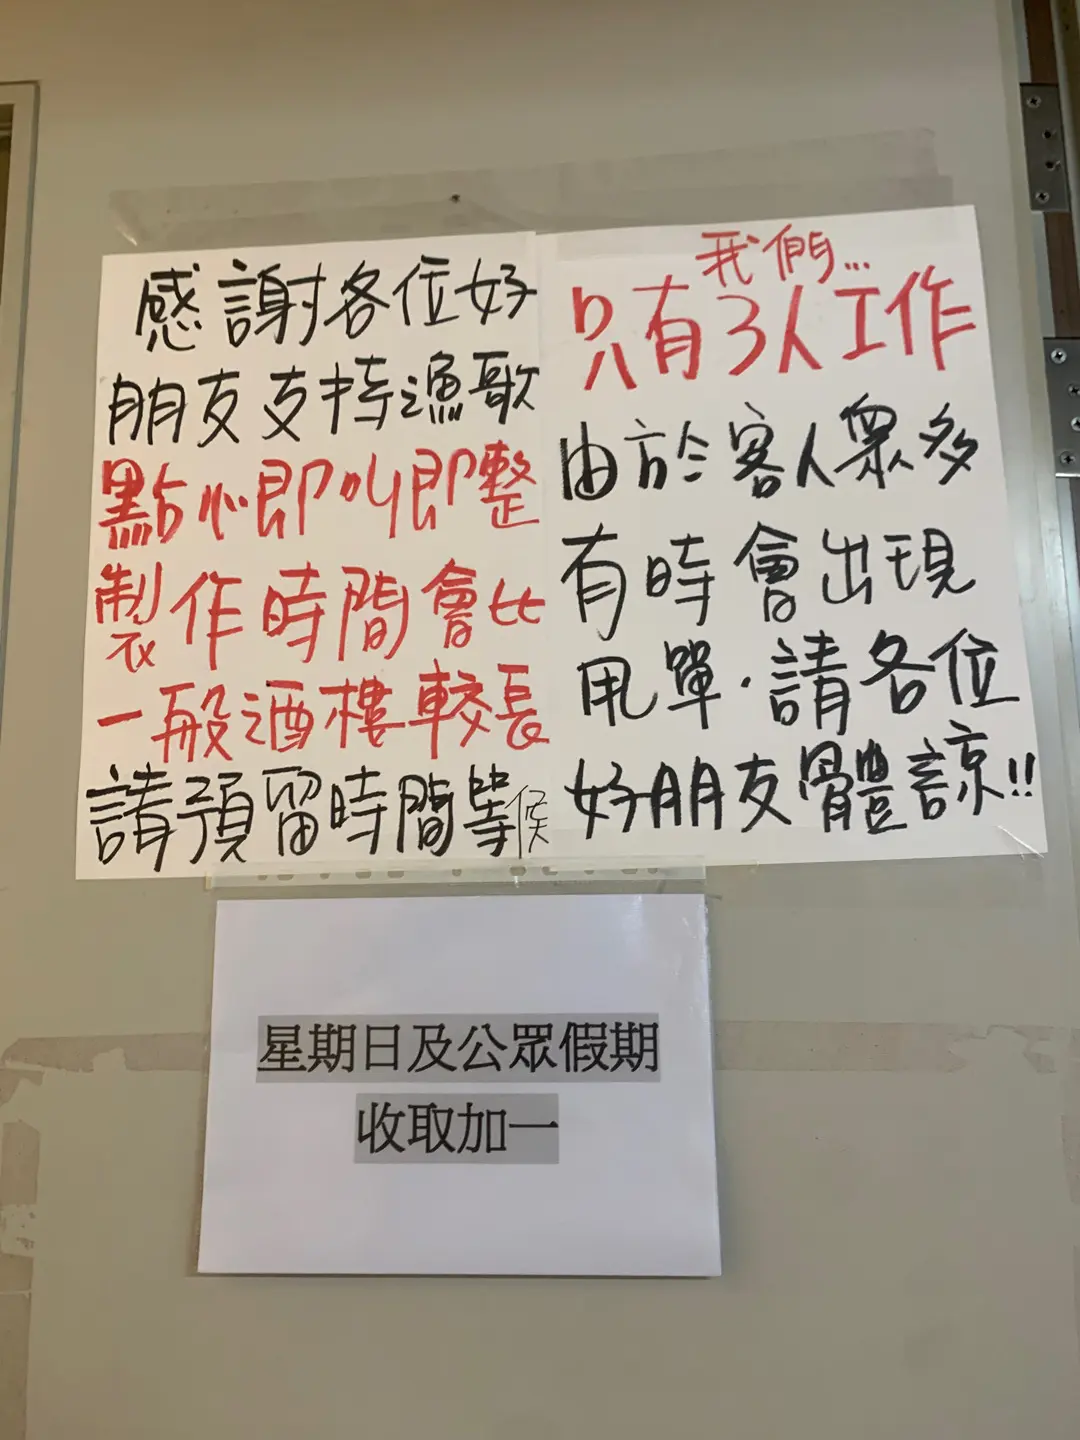 感謝各位好
朋友支持漁歌
點心即叫即整
製作時間會比
一般酒樓較長
請預留時間等候
我們...
只有3人工作
由於客人眾多
有時會出現
甩單·請各位
好朋友體諒!!
星期日及公眾假期
收取加一